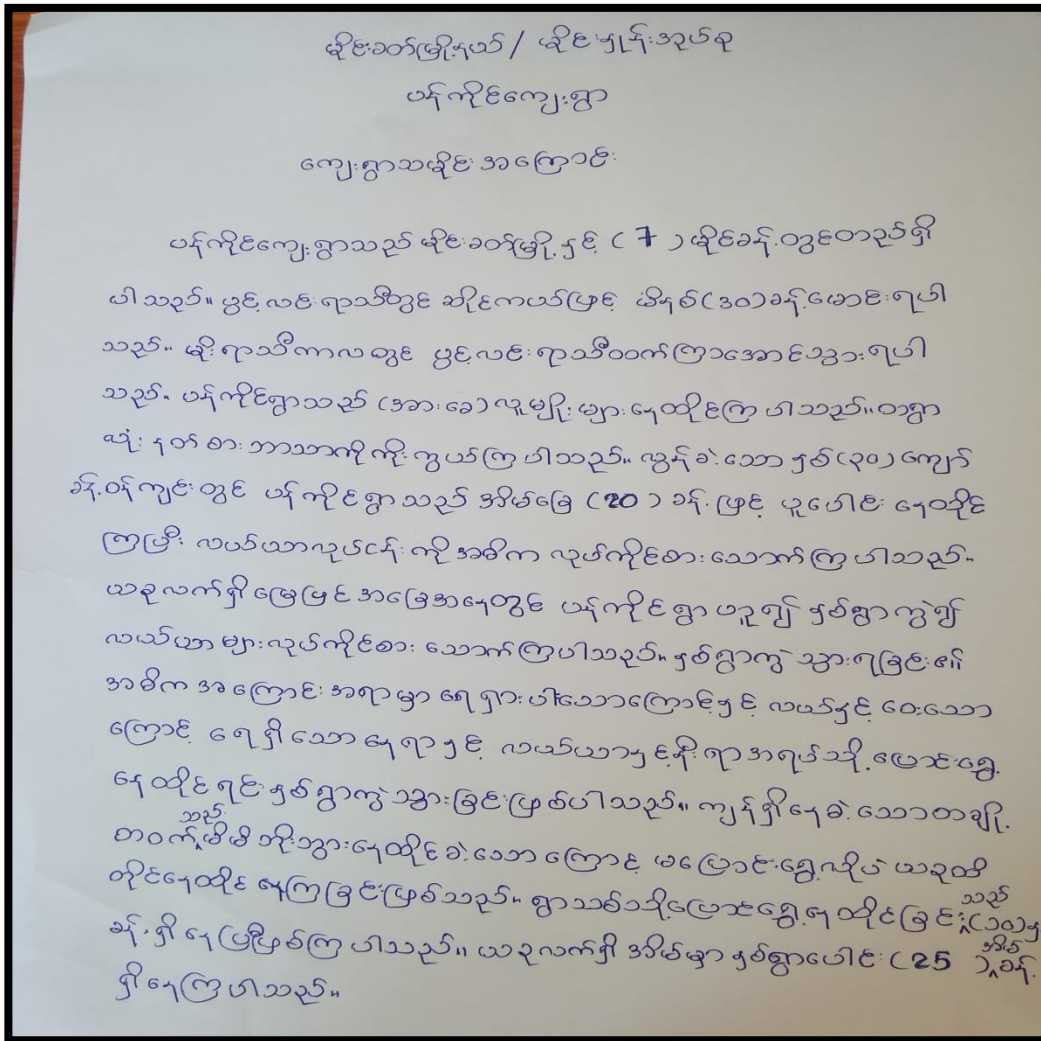 မိုင်းခတ်မြို့နယ် / မိုင်းရှုန်းအုပ်စု
ပန်ကိုင်ကျေးရွာ
ကျေးရွာသမိုင်းအကြောင်း
ပန်ကိုင်ကျေးရွာသည် မိုင်းခတ်မြို့နှင့် ( 7 ) မိုင်ခန့်တွင်တည်ရှိ
ပါသည်။ ပွင့်လင်းရာသီတွင် ဆိုင်ကယ်ဖြင့် မိနစ်(၃၀)ခန့်မောင်းရပါ
သည်။ မိုးရာသီကာလတွင် ပွင့်လင်းရာသီထက်ကြာအောင်သွားရပါ
သည်။ ပန်ကိုင်ရွာသည် (အားခေ)လူမျိုးများနေထိုင်ကြပါသည်။တရွာ
လုံး နတ်စားဘာသာကိုကိုးကွယ်ကြပါသည်။ လွန်ခဲ့သောနှစ်(၃၀)ကျော်
ခန့်ဝန်ကျင်းတွင် ပန်ကိုင်ရွာသည် အိမ်ခြေ (20 ) ခန့်ဖြင့် ပူပေါင်း နေထိုင်
ကြပြီး လယ်ယာလုပ်ငန်းကိုအဓိက လုပ်ကိုင်စားသောက်ကြပါသည်။
ယခုလက်ရှိမြေပြင်အခြေအနေတွင် ပန်ကိုင်ရွာဟူ၍ နှစ်ရွာကွဲ၍
လယ်ယာများလုပ်ကိုင်စား သောက်ကြပါသည်။ နှစ်ရွာကွဲသွားရခြင်း၏
အဓိကအကြောင်းအရာမှာ ရေရှားပါးသောကြောင့်နှင့် လယ်နှင့်ဝေးသော
ကြောင့် ရေရှိသောနေရာနှင့် လယ်ယာနှင့်နီးရာအရပ်သို့ပြောင်းရွှေ့
နေထိုင်ရင်းနှစ်ရွာကွဲသွားခြင်းဖြစ်ပါသည်။ ကျန်ရှိနေခဲ့သောတချို့
တဝက်သည်မိမိဘိုးဘွားနေထိုင်ခဲ့သောကြောင့် မပြောင်းရွှေ့လိုပဲယခုထိ
တိုင်နေထိုင်နေကြခြင်းဖြစ်သည်။ ရွာသစ်သို့ပြောင်းရွှေ့နေထိုင်ခြင်းသည်(၁၀)နှစ်
ခန့်ရှိနေပြီဖြစ်ကြပါသည်။ ယခုလက်ရှိအိမ်မှာနှစ်ရွာပေါင်း (25 )အိမ်ခန့်
ရှိနေကြပါသည်။